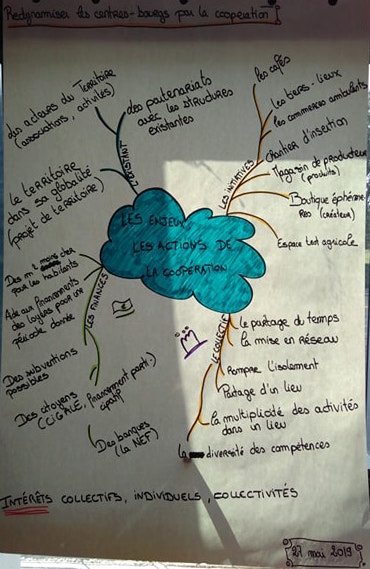 Redynamiser les centres-bourgs par la coopération
LES ENJEUX
LES ACTIONS DE
LA COOPÉRATION
L'EXISTANT
des partenariats
avec les structures
existantes
des acteurs du territoire
(associations, activités)
Le territoire
dans sa globalité
(projet de territoire)
LES INITIATIVES
les cafés
les tiers-lieux
les commerces ambulants
Chantier d'insertion
Magasin de producteur
(produits)
Boutique éphémère
(créateur)
Espace test agricole
LES FINANCES
Des m² moins cher
pour les habitants
Aide aux financements
des loyers pour une
période donnée
Des subventions
possibles
Des citoyens
(CIGALE, financement parti.)
Des banques
(la NEF)
LE COLLECTIF
le partage du temps
la mise en réseau
Rompre l'isolement
Partage d'un lieu
la multiplicité des activités
dans un lieu
la diversité des compétences
INTÉRÊTS COLLECTIFS, INDIVIDUELS, COLLECTIVITÉS
27 mai 2019